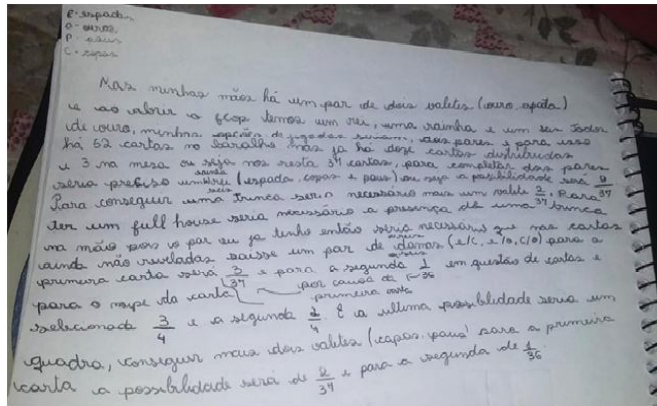 E - espadas
O - ouros
P - paus
C - copas
Nas minhas mãos há um par de dois valetes (ouro,
e ao abrir o flop temos um rei, uma rainha e um seis todos
de ouro, minhas opções de jogadas seriam, dois pares e para isso
há 52 cartas no baralho mas já há doze cartas distribuidas
e 3 na mesa ou seja nos resta 37 cartas, para completar dois pares
seria preciso um rei (espada, copas e paus) ou seja a posibilidade será 9/37
rainha
seis
Para conseguir uma trinca seria necessário mais um valete 2/37. Para
ter um full house seria necessário a presença de uma trinca
na mão pois o par eu ja tenho então seria necessário que nas cartas
ainda não reveladas saisse um par de damas (e/c, e/o, c/o) para a
primeira carta será 3/37 e para a segunda 2/36 em questão de cartas e
por causa da
primeira carta
para o naipe da carta
selecionada 3/4 e a segunda 2/4. E a ultima possiblidade seria um
quadra, conseguir mais dois valetes (copas, paus) para a primeira
carta a possiblidade será de 2/37 e para a segunda de 1/36.